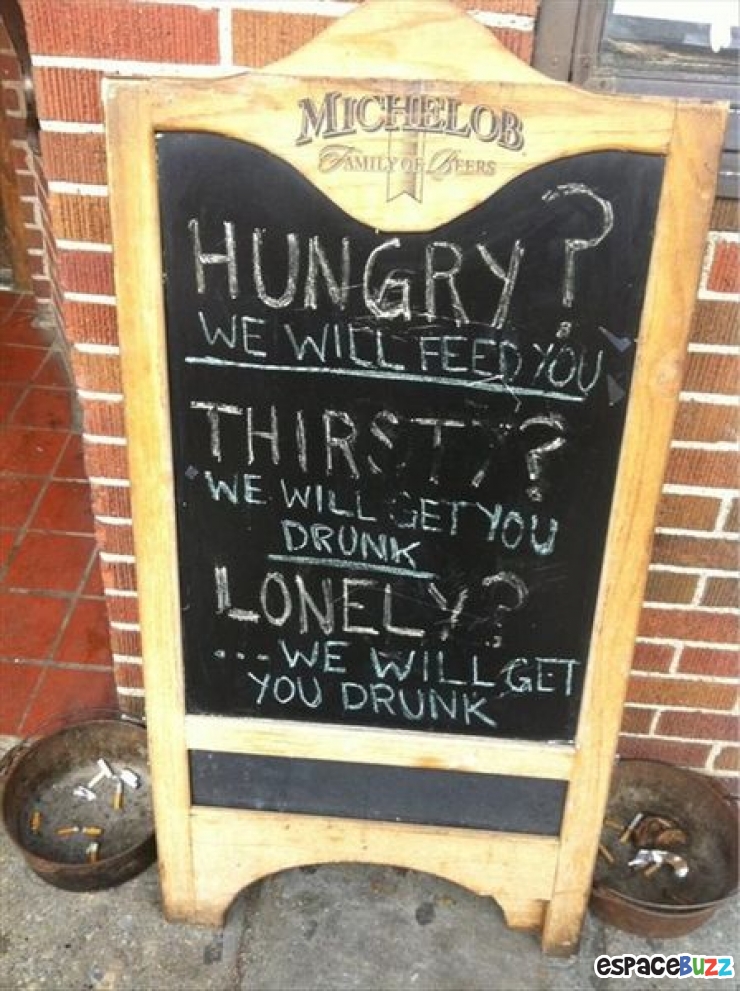 MICHELOB
FAMILY OF BEERS
HUNGRY?
WE WILL FEED YOU
THIRSTY?
WE WILL GET YOU
DRUNK
LONELY?
...WE WILL GET
YOU DRUNK
espaceBuzz